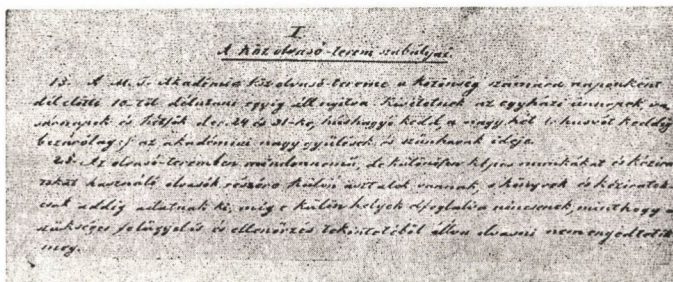 I.
A köz olvasó-terem szabályai.
1§. A M. T. Akadémia köz olvasó-terme a közönség számára naponként
délelőtti 10-től délutáni egyig áll nyitva. Kivételnek az egyházi ünnepek, va-
sárnapok és hétfők dec. 24 és 31-ke, húshagyó kedd, a nagy hét (: husvét keddig
bezárólag :) az akadémiai nagy gyűlések és szünnapok ideje.
2§. Az olvasó-teremben mindennemű, de különösen képes munkákat és kézira-
tokat használó olvasók részére külön asztalok vannak, s könyvek és kéziratok
csak addig adatnak ki, míg e külön helyek elfoglalva nincsenek, minthogy a
szükséges felügyelés és ellenőrzés tekintetéből állva olvasni nem engedtetik
meg.